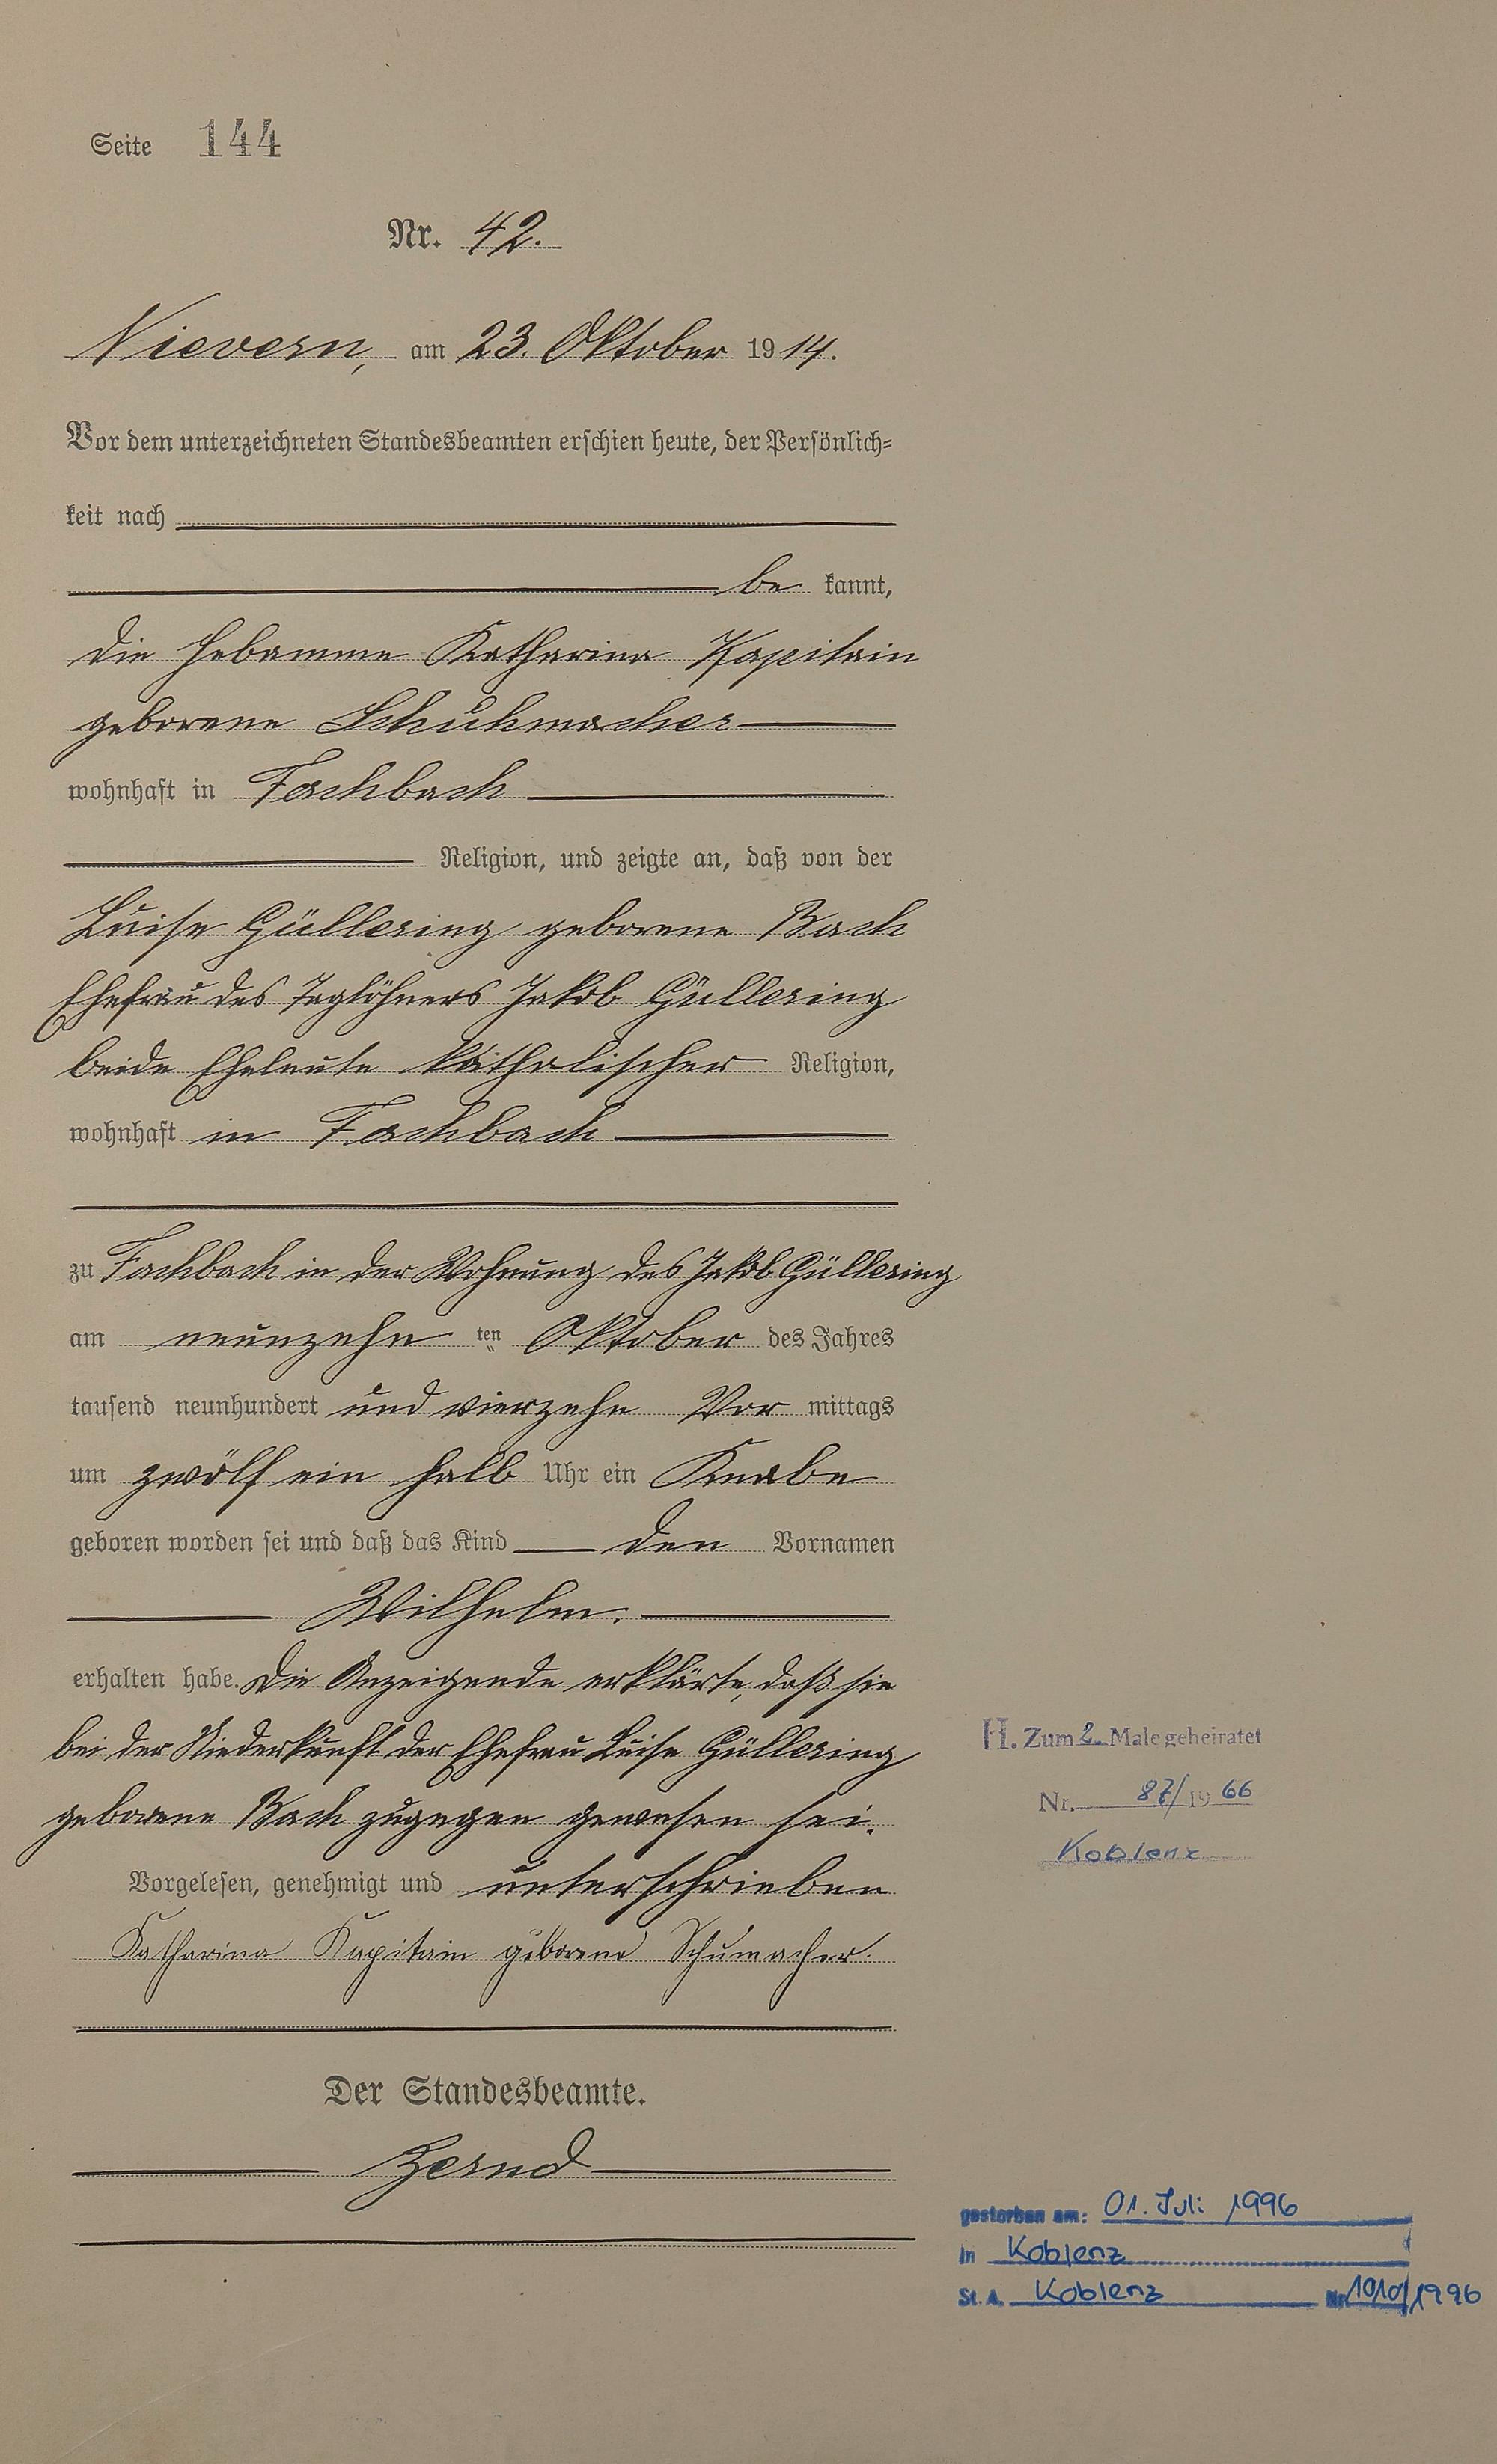 Seite 144
Nr. 42.
Nievern, am 23. Oktober 1914.
Vor dem unterzeichneten Standesbeamten erschien heute, der Persönlich-
keit nach
be kannt,
die Hebamme Katharina Kapitain
geborene Schuhmacher
wohnhaft in Fachbach
Religion, und zeigte an, daß von der
Luise Güllering geborene Bach
Ehefrau des Taglöhners Jakob Güllering
beide Eheleute katholischer Religion,
wohnhaft in Fachbach
zu Fachbach in der Wohnung des Jakob Güllering
am neunzehn ten Oktober des Jahres
tausend neunhundert und vierzehn Vor mittags
um zwölf ein halb Uhr ein Knabe
geboren worden sei und daß das Kind den Vornamen
Wilhelm.
erhalten habe. Die Anzeigende erklärte, daß sie
bei der Niederkunft der Ehefrau Luise Güllering
geborene Bach zugegen gewesen sei.
Vorgelesen, genehmigt und unterschrieben
Katharina Kapitain geborene Schumacher.
Der Standesbeamte.
Zernd
H. Zum 2. Male geheiratet
Nr. 87/1966
Koblenz
gestorben am: 01. Juli 1996
in Koblenz
St. A. Koblenz Nr. 1010/1996